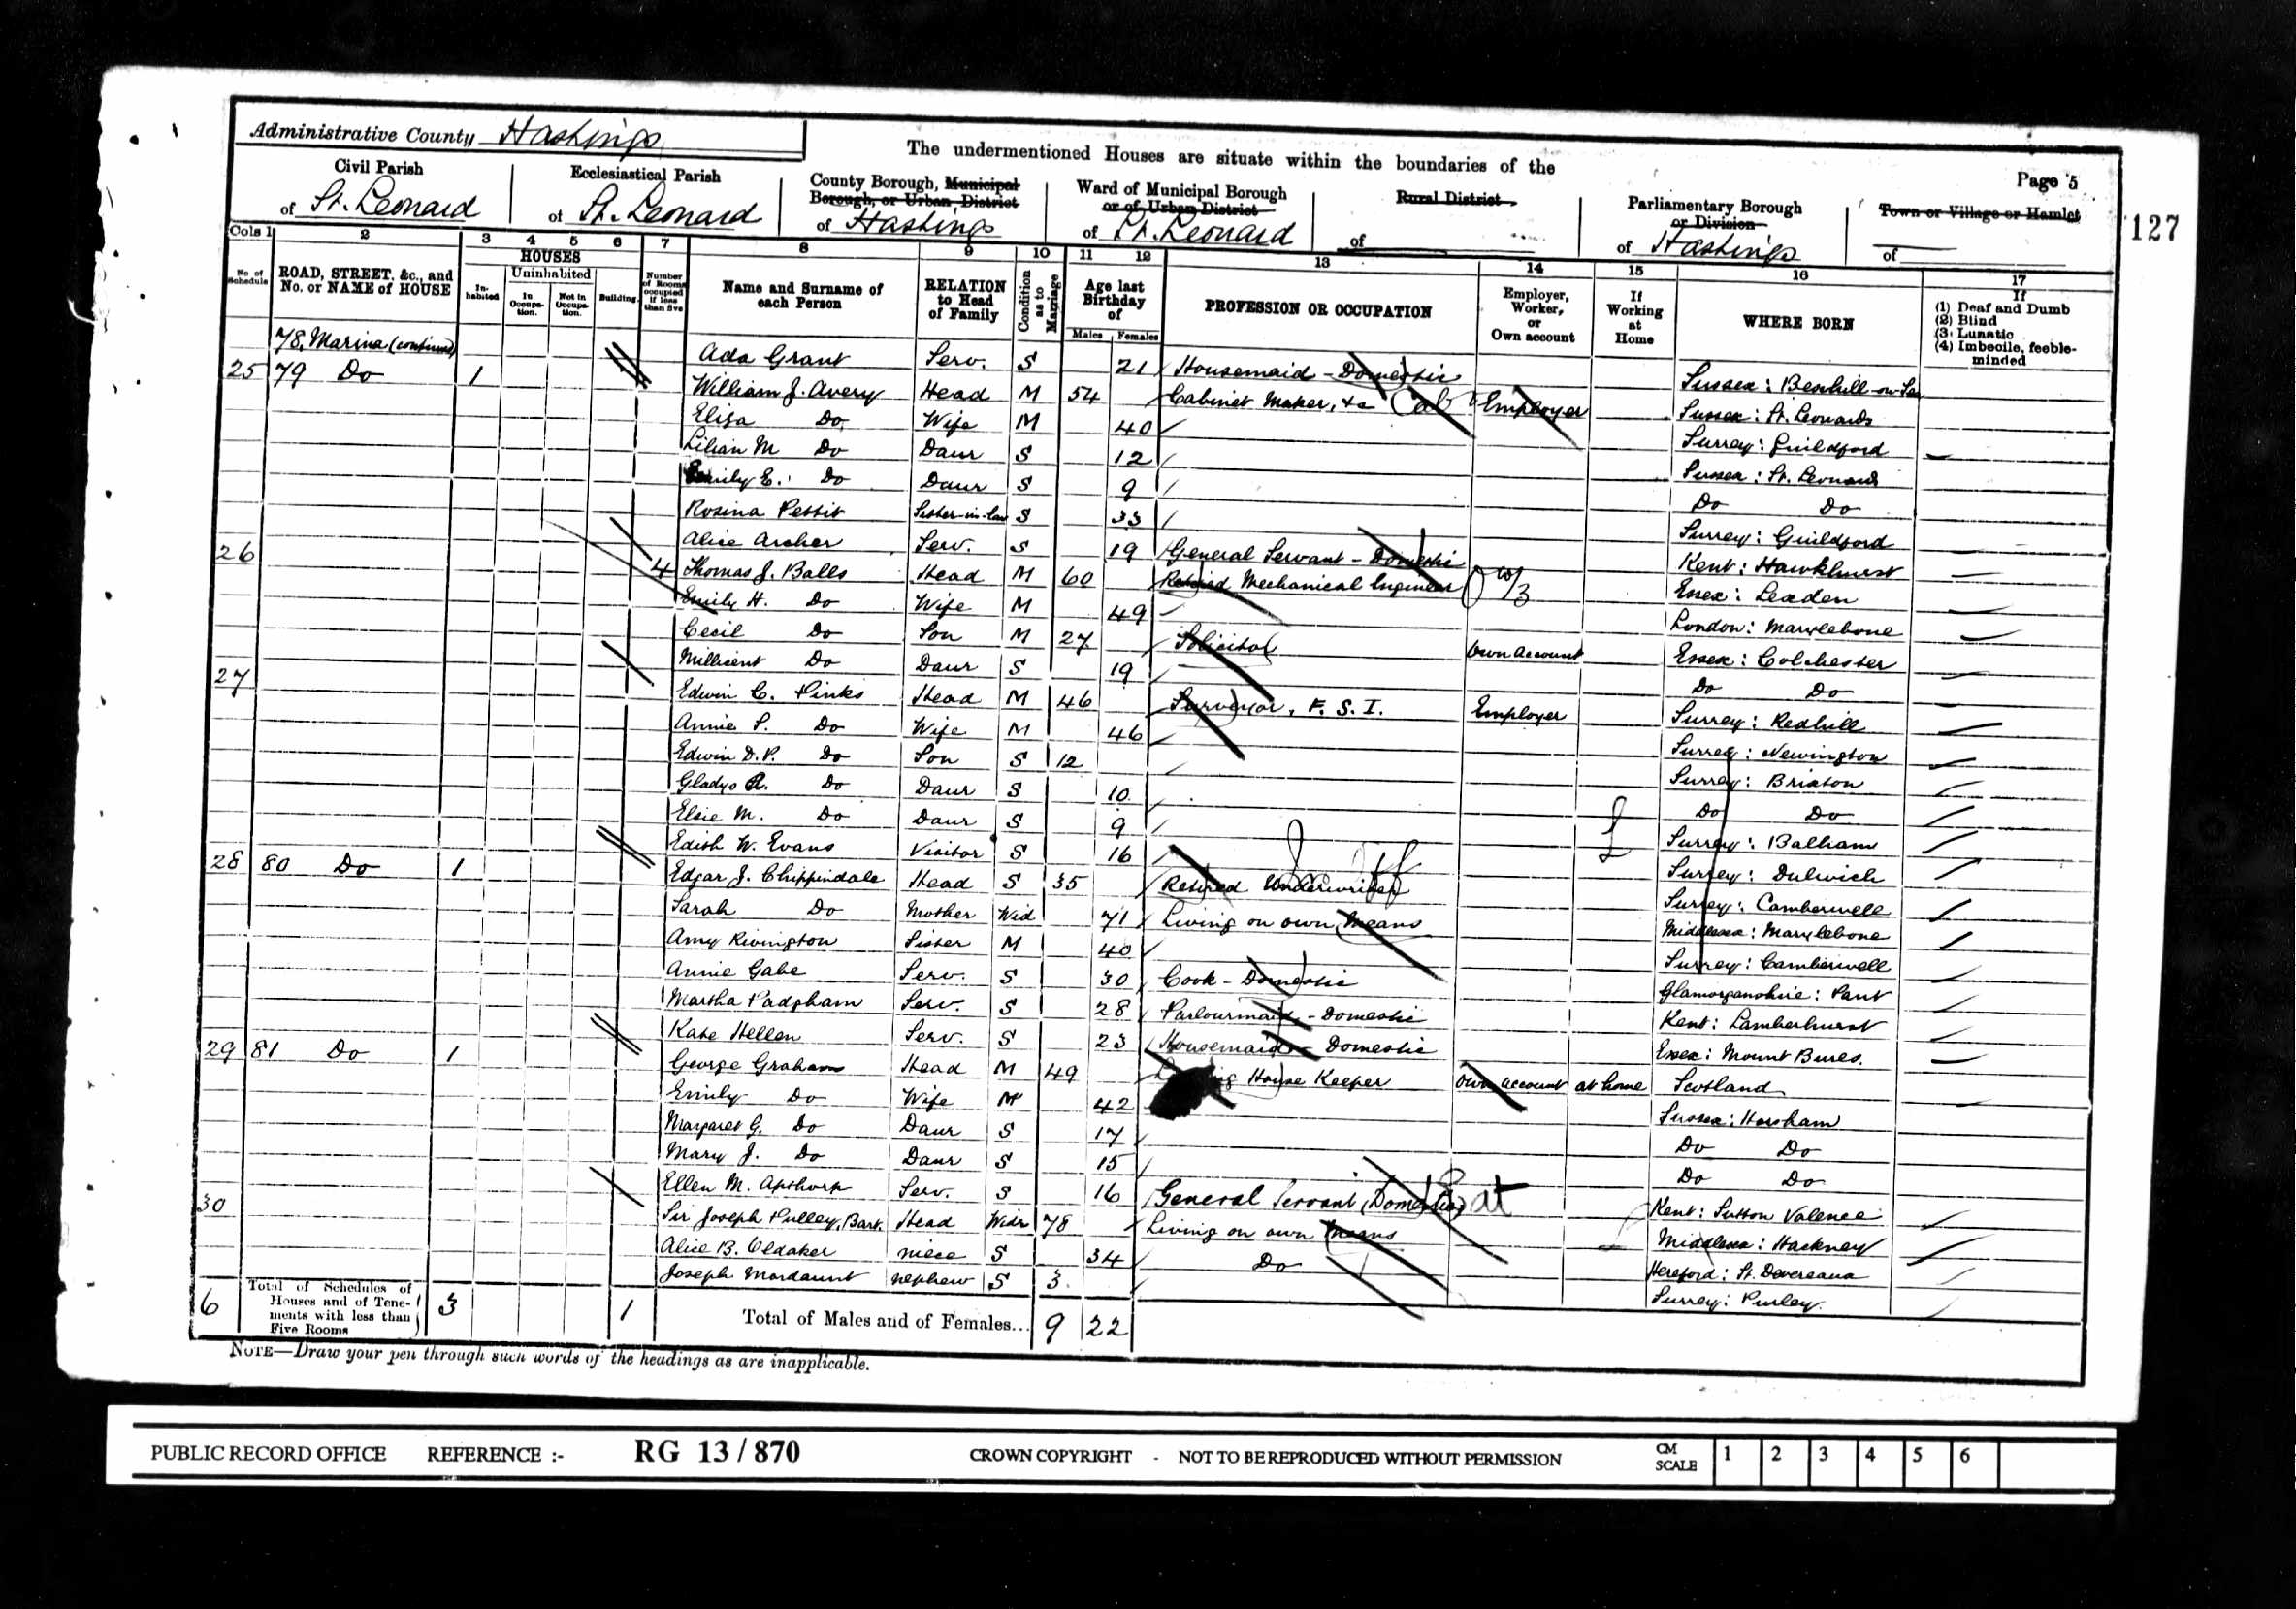 Administrative County Hastings
The undermentioned Houses are situate within the boundaries of the
Page 5
127
Civil Parish of St. Leonard
Ecclesiastical Parish of St. Leonard
County Borough, Municipal Borough, or Urban District of Hastings
Ward of Municipal Borough or of Urban District of St. Leonard
Rural District of
Parliamentary Borough or Division of Hastings
Town or Village or Hamlet of
Cols 1 2 3 4 5 6 7 8 9 10 11 12 13 14 15 16 17
No of Schedule
ROAD, STREET, &c., and No. or NAME of HOUSE
HOUSES
Inhabited
Uninhabited
In Occupation.
Not in Occupation.
Building.
Number of Rooms occupied if less than five
Name and Surname of each Person
RELATION to Head of Family
Condition as to Marriage
Age last Birthday of
Males Females
PROFESSION OR OCCUPATION
Employer, Worker, or Own account
If Working at Home
WHERE BORN
If
(1) Deaf and Dumb
(2) Blind
(3) Lunatic
(4) Imbecile, feeble-minded
78, Marina (continued) Ada Grant Serv. S 21 Housemaid - Domestic Sussex: Bexhill-on-Sea
25 79 Do 1 William J. Avery Head M 54 Cabinet Maker, &c Employer Sussex: St. Leonards
Eliza Do Wife M 40 Surrey: Guildford
Lilian M Do Daur S 12 Sussex: St. Leonards
Emily E. Do Daur S 9 Do Do
Rosina Pettit Sister-in-law S 33 Surrey: Guildford
Alice Archer Serv. S 19 General Servant - Domestic Kent: Hawkhurst
26 4 Thomas J. Balls Head M 60 Retired Mechanical Engineer Essex: Lexden
Emily H. Do Wife M 49 London: Marylebone
Cecil Do Son M 27 Solicitor Own Account Essex: Colchester
Millicent Do Daur S 19 Do Do
27 Edwin C. Pinks Head M 46 Surveyor, F. S. I. Employer Surrey: Redhill
Annie S. Do Wife M 46 Surrey: Newington
Edwin D. P. Do Son S 12 Surrey: Brixton
Gladys R. Do Daur S 10 Do Do
Elsie M. Do Daur S 9 Surrey: Balham
Edith W. Evans Visitor S 16 Surrey: Dulwich
28 80 Do 1 Edgar J. Chippindale Head S 35 Retired Underwriter Surrey: Camberwell
Sarah Do Mother Wid 71 Living on own Means Middlesex: Marylebone
Amy Rivington Sister M 40 Surrey: Camberwell
Annie Gabe Serv. S 30 Cook - Domestic Glamorganshire: Pant
Martha Padgham Serv. S 28 Parlourmaid - Domestic Kent: Lamberhurst
Kate Hellen Serv. S 23 Housemaid - Domestic Essex: Mount Bures.
29 81 Do 1 George Graham Head M 49 House Keeper Own account at home Scotland
Emily Do Wife M 42 Sussex: Horsham
Margaret G. Do Daur S 17 Do Do
Mary J. Do Daur S 15 Do Do
Ellen M. Apthorp Serv. S 16 General Servant (Domestic) Kent: Sutton Valence
30 Sir Joseph Pulley, Bart. Head Widr 78 Living on own Means Middlesex: Hackney
Alice B. Oldaker niece S 34 Do Hereford: St. Devereaux
Joseph Mordaunt nephew S 3 Surrey: Purley.
6 Total of Schedules of Houses and of Tenements with less than Five Rooms 3 1 Total of Males and of Females... 9 22
NOTE—Draw your pen through such words of the headings as are inapplicable.
PUBLIC RECORD OFFICE REFERENCE :- RG 13 / 870 CROWN COPYRIGHT - NOT TO BE REPRODUCED WITHOUT PERMISSION CM SCALE 1 2 3 4 5 6